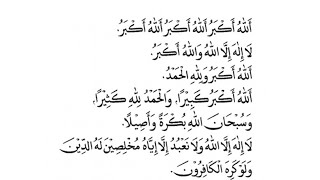 اَللهُ أَكْبَرُ اَللهُ أَكْبَرُ اَللهُ أَكْبَرُ.
لَا إِلٰهَ إِلَّا اللهُ وَاللهُ أَكْبَرُ.
اَللهُ أَكْبَرُ وَلِلّٰهِ الْحَمْدُ.
اَللهُ أَكْبَرُ كَبِيْرًا، وَالْحَمْدُ لِلّٰهِ كَثِيْرًا،
وَسُبْحَانَ اللهِ بُكْرَةً وَأَصِيْلًا.
لَا إِلٰهَ إِلَّا اللهُ وَلَا نَعْبُدُ إِلَّا إِيَّاهُ مُخْلِصِيْنَ لَهُ الدِّيْنَ
وَلَوْ كَرِهَ الْكَافِرُوْنَ.